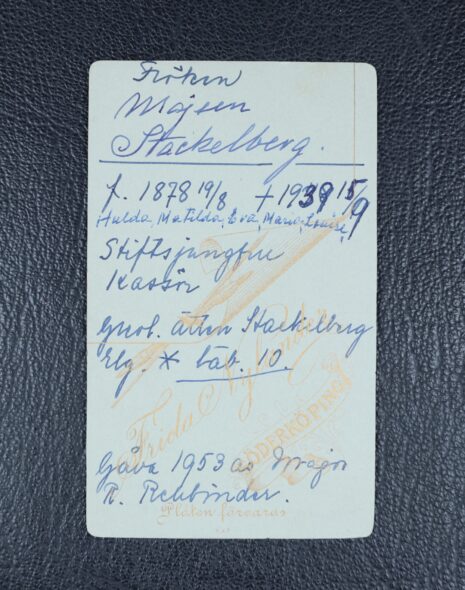 Fröken
Majsen
Stackelberg.
f. 1878 19/8 † 1939 15/9
Hulda, Matilda, Eva, Maria, Louise,
Stiftsjungfru
Kassör
ätten Stackelberg
Elg. * tab. 10.
Frida Nylander
SÖDERKÖPING
Gåva 1953 av Major
R. Rehbinder.
Platen förvaras